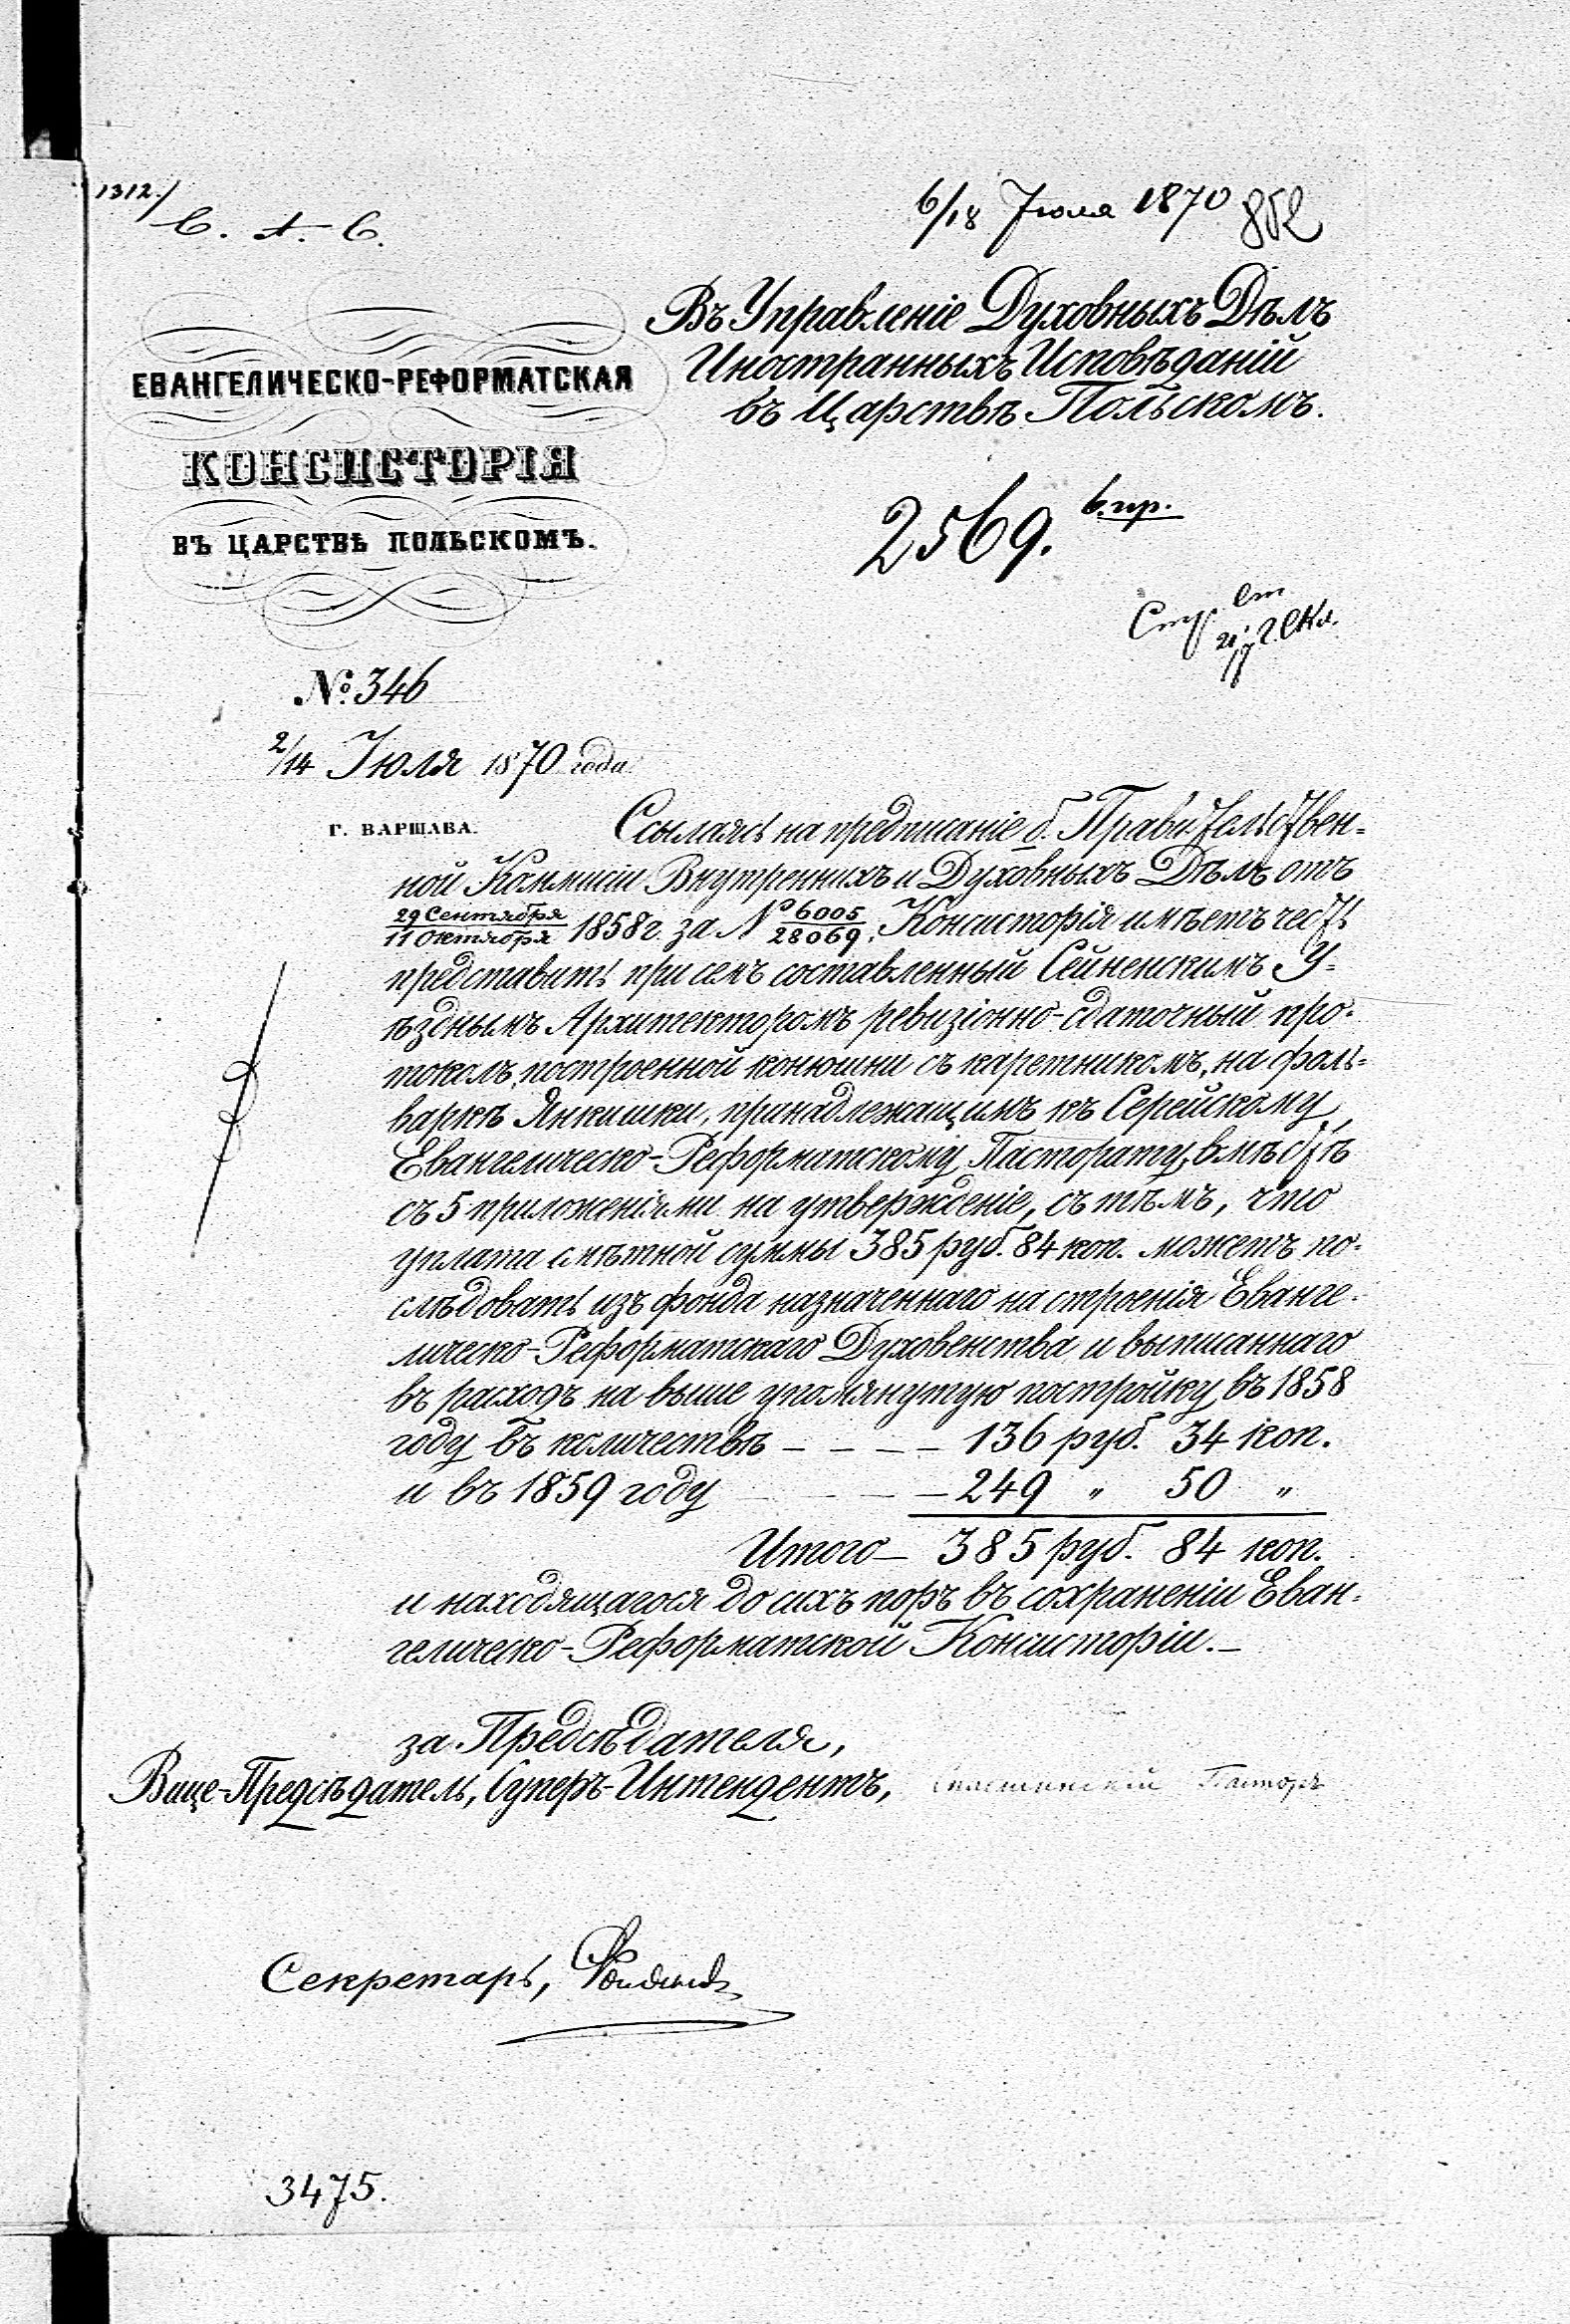 1312./
С. А. С.
6/18 Июля 1870
852
Въ Управленіе Духовныхъ Дѣлъ
Иностранныхъ Исповѣданій
въ Царствѣ Польскомъ.
ЕВАНГЕЛИЧЕСКО-РЕФОРМАТСКАЯ
КОНСИСТОРІЯ
ВЪ ЦАРСТВѢ ПОЛЬСКОМЪ.
2569. 6.пр.
№ 346
2/14 Іюля 1870 года
Г. ВАРШАВА.
Ссылаясь на предписаніе б. Правительствен-
ной Коммисіи Внутреннихъ и Духовныхъ Дѣлъ отъ
29 Сентября/11 Октября 1858 г. за № 6005/28069, Консисторія имѣетъ честь
представить при семъ составленный Сейненскимъ У-
ѣзднымъ Архитекторомъ ревизіонно-сдаточный про-
токолъ построенной конюшни съ каретникомъ, на фоль-
варкѣ Янкишки, принадлежащимъ къ Серейскому
Евангелическо-Реформатскому Пасторату, вмѣстѣ
съ 5 приложеніями на утвержденіе, съ тѣмъ, что
уплата смѣтной суммы 385 руб. 84 коп. можетъ по-
слѣдовать изъ фонда назначеннаго на строенія Еванге-
лическо-Реформатскаго Духовенства и выписаннаго
въ расходъ на выше упомянутую постройку въ 1858
году въ количествѣ – – – – 136 руб. 34 коп.
и въ 1859 году – – – – 249 " 50 "
Итого – 385 руб. 84 коп.
и находящагося до сихъ поръ въ сохраненіи Еван-
гелическо-Реформатской Консисторіи. –
за Предсѣдателя,
Вице-Предсѣдатель, Суперъ-Интендентъ,
Пасторъ
Секретарь,
3475.